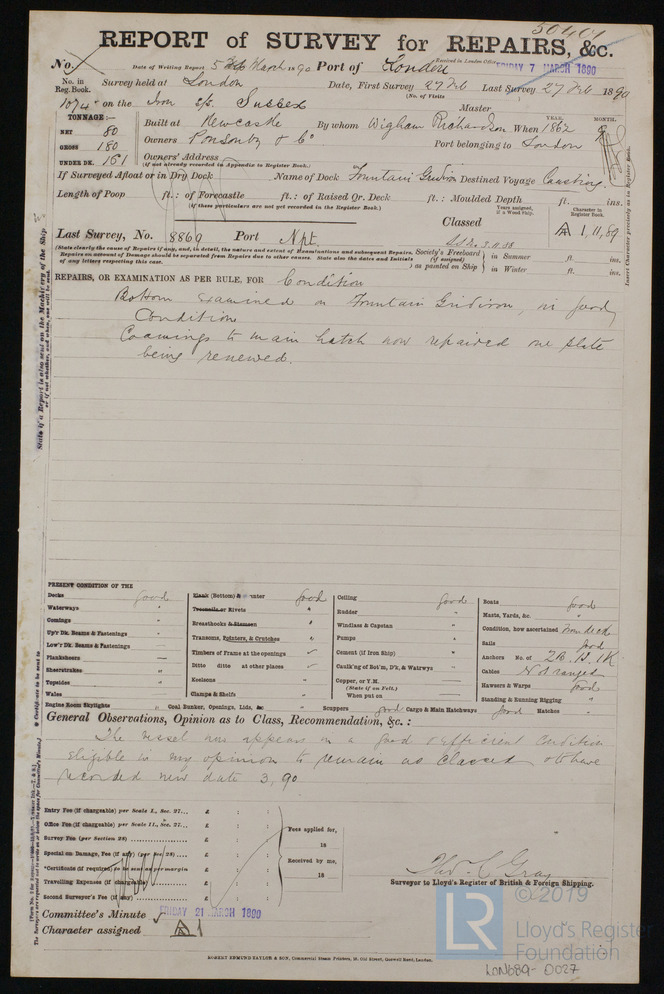 50401
REPORT of SURVEY for REPAIRS, &c.
No. Date of Writing Report 5 March 1890 Port of London Received in London Office FRIDAY 7 MARCH 1890
No. in Reg. Book. Survey held at London Date, First Survey 27 Feb Last Survey 27 Feb 1890
(No. of Visits
1074 on the Iron s/s. Sussex Master
TONNAGE:— Built at Newcastle By whom Wigham Richardson When 1862 YEAR. MONTH.
NET 80
GROSS 180 Owners Ponsonby & Co Port belonging to London
UNDER DK. 161 Owners' Address
(if not already recorded in Appendix to Register Book.)
If Surveyed Afloat or in Dry Dock Name of Dock Fountain Gridiron Destined Voyage Coasting.
Length of Poop ft.: of Forecastle ft.: of Raised Qr. Deck ft.: Moulded Depth ft. ins.
(If these particulars are not yet recorded in the Register Book.)
Years assigned, if a Wood Ship.
Character in Register Book.
Classed A 1. 11, 89
Last Survey, No. 8869 Port Npt.
S.S. No 3. 11. 88
(State clearly the cause of Repairs if any, and, in detail, the nature and extent of Examinations and subsequent Repairs.
Repairs on account of Damage should be separated from Repairs due to other causes. State also the dates and Initials
of any letters respecting this case.
Society's Freeboard (if assigned) as painted on Ship in Summer ft. ins.
in Winter ft. ins.
Insert Character precisely as in Register Book.
REPAIRS, OR EXAMINATION AS PER RULE, FOR Condition
Bottom examined on Fountain Gridiron, in good
Condition
Coamings to main hatch now repaired one plate
being renewed.
State if a Report is also sent on the Machinery of the Ship
PRESENT CONDITION OF THE
Decks good
Waterways "
Comings "
Up'r Dk. Beams & Fastenings "
Low'r Dk. Beams & Fastenings
Planksheers
Sheerstrakes
Topsides
Wales
Engine Room Skylights "
Plank (Bottom) & Counter good
Treenails or Rivets "
Breasthooks & Stemson
Transoms, Pointers, & Crutches
Timbers of Frame at the openings
Ditto ditto at other places
Keelsons
Clamps & Shelfs
Coal Bunker, Openings, Lids, &c "
Ceiling good
Rudder
Windlass & Capstan
Pumps
Cement (if Iron Ship)
Caulk'ng of Bot'm, D'k, & Watrwys
Copper, or Y.M.
(State if on Felt.)
When put on
Scuppers good Cargo & Main Hatchways good Hatches "
Boats good
Masts, Yards, &c. "
Condition, how ascertained from deck
Sails good
Anchors No. of 2B. 1S. 1K
Cables Not ranged
Hawsers & Warps good
Standing & Running Rigging "
General Observations, Opinion as to Class, Recommendation, &c.:
The vessel now appears in a good & efficient condition
eligible in my opinion to remain as classed & to have
recorded new date 3, 90
Entry Fee (if chargeable) per Scale I., Sec. 27... £ : :
Office Fee (if chargeable) per Scale II., Sec. 27... £ : :
Survey Fee (per Section 28) £ : :
Special or Damage, Fee (if any) (per Sec 28) £ : :
*Certificate (if required) to be sent as per margin £
Travelling Expenses (if chargeable) £ : :
Second Surveyor's Fee (if any) £ : :
Fees applied for,
18
Received by me,
18
Surveyor to Lloyd's Register of British & Foreign Shipping.
Committee's Minute FRIDAY 21 MARCH 1890
Character assigned A 1
ROBERT EDMUND TAYLOR & SON, Commercial Steam Printers, 19, Old Street, Goswell Road, London.
© 2019
LR
Lloyd's Register
Foundation
LON689-0027